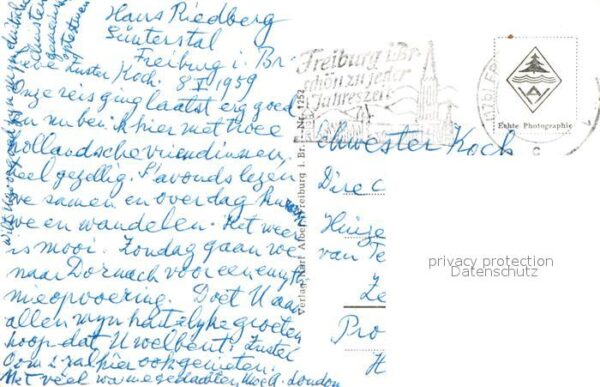 Haus Riedberg
Günterstal
Freiburg i. Br.
Zuster Koch. 8 X 1959
Onze reis ging laatst erg goed
en nu ben ik hier met twee
hollandsche vriendinnen,
heel gezellig. S'avonds lezen
we samen en over dag
we en wandelen. Het weer
is mooi. Zondag gaan we
naar Dornach voor een
opvoering. Doet U aan
allen mijn hartelijke groeten
hoop dat U wel bent. Zuster
zal hier ook genieten.
Met veel
Freiburg i. Br.
schön zu jeder
Jahreszeit
Echte Photographie
Verlag Karl Alber Freiburg i. Br. Nr. 1252
Schwester Koch
Direc
Huize
van Te
Ze
Pro
H
privacy protection
Datenschutz